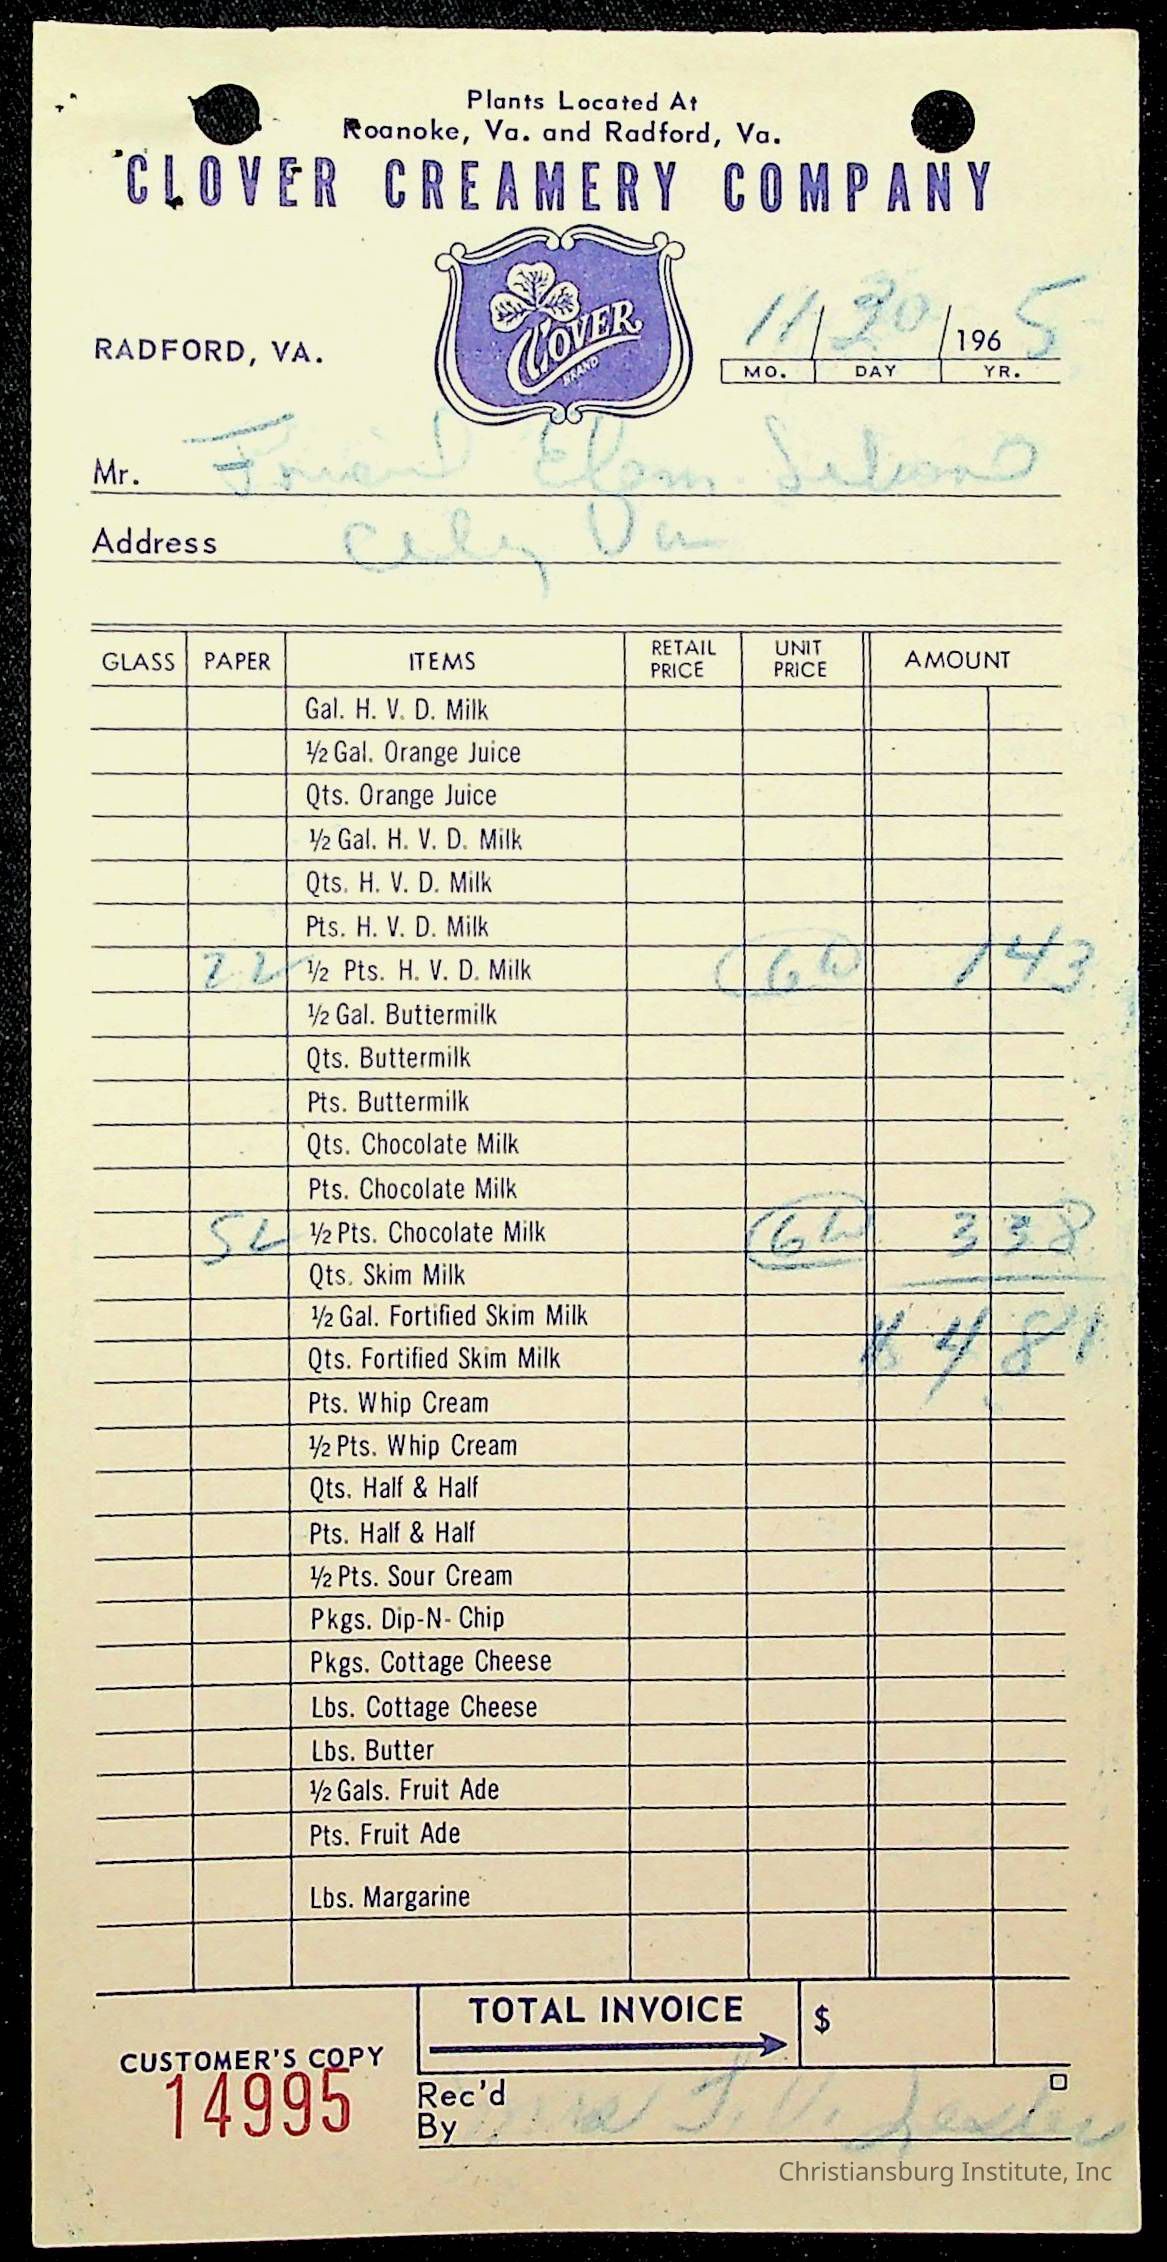 Plants Located At
Roanoke, Va. and Radford, Va.
CLOVER CREAMERY COMPANY
CLOVER
BRAND
RADFORD, VA.
11/30/1965
MO. DAY YR.
Mr. Friend Elem. School
Address City Va
GLASS PAPER ITEMS RETAIL PRICE UNIT PRICE AMOUNT
Gal. H. V. D. Milk
½ Gal. Orange Juice
Qts. Orange Juice
½ Gal. H. V. D. Milk
Qts. H. V. D. Milk
Pts. H. V. D. Milk
22 ½ Pts. H. V. D. Milk 6½ 1 43
½ Gal. Buttermilk
Qts. Buttermilk
Pts. Buttermilk
Qts. Chocolate Milk
Pts. Chocolate Milk
52 ½ Pts. Chocolate Milk 6½ 3 38
Qts. Skim Milk
½ Gal. Fortified Skim Milk
$ 4 81
Qts. Fortified Skim Milk
Pts. Whip Cream
½ Pts. Whip Cream
Qts. Half & Half
Pts. Half & Half
½ Pts. Sour Cream
Pkgs. Dip-N-Chip
Pkgs. Cottage Cheese
Lbs. Cottage Cheese
Lbs. Butter
½ Gals. Fruit Ade
Pts. Fruit Ade
Lbs. Margarine
TOTAL INVOICE $
CUSTOMER'S COPY
14995
Rec'd
By Mrs T. V. Lester
Christiansburg Institute, Inc